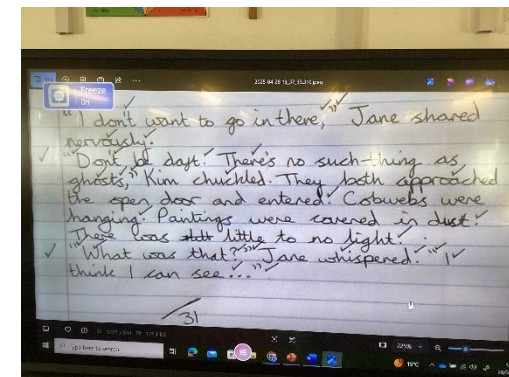 2025 04 28 13_37_33.310.jpeg
Freeze
On
"I don't want to go in there," Jane shared
nervously.
"Don't be daft. There's no such-thing as,
ghosts," Kim chuckled. They both approached
the open door and entered. Cobwebs were
hanging. Paintings were covered in dust.
There was little to no light.
"What was that?" Jane whispered. "I
think I can see..."
31
Type here to search
229%
19°C